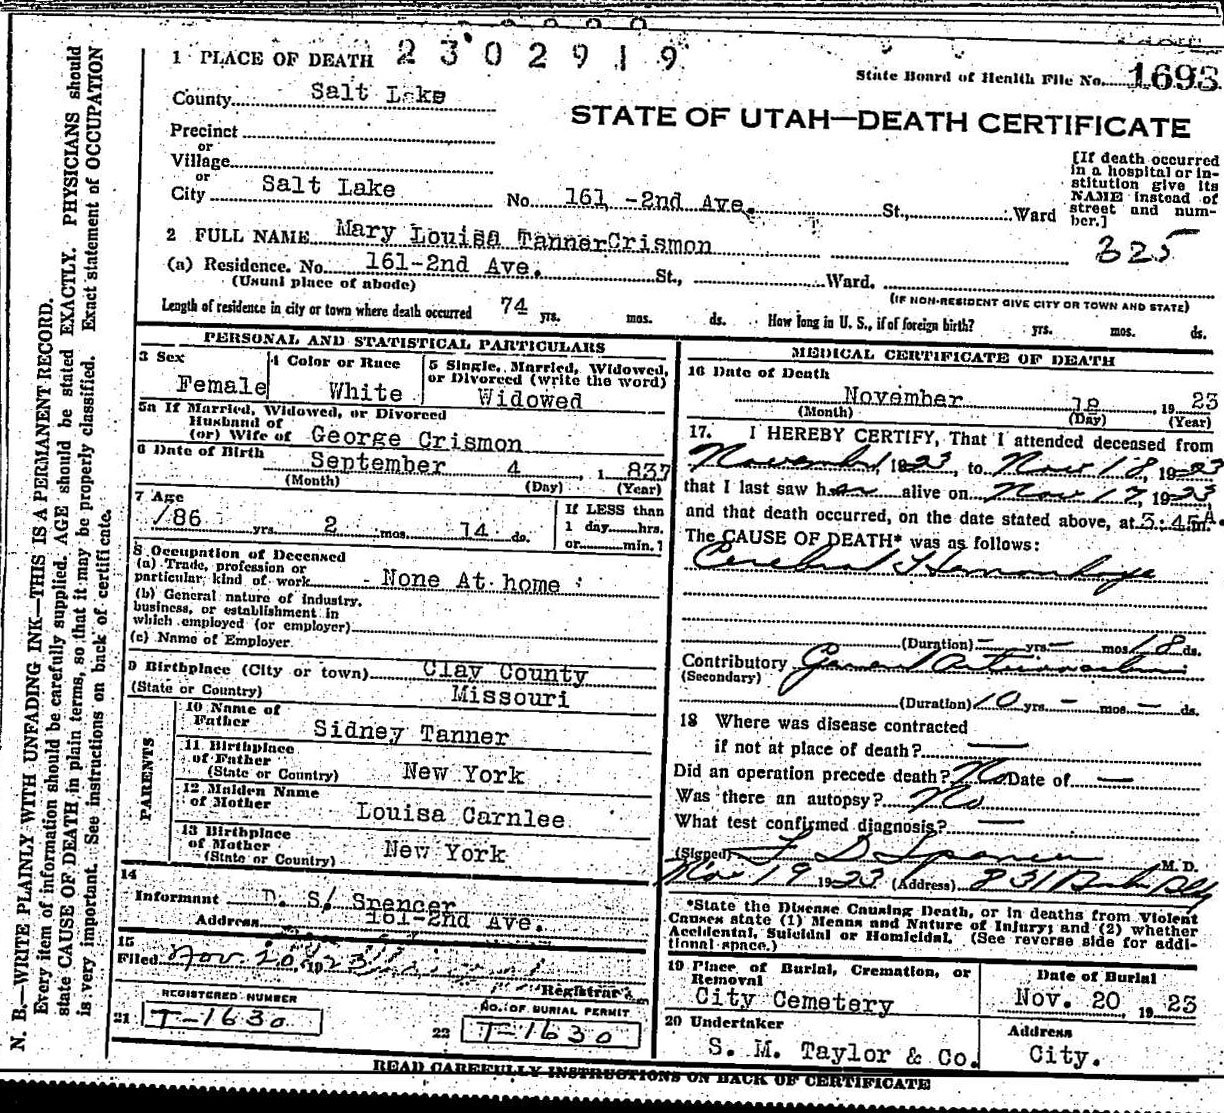 1 PLACE OF DEATH 2302919
State Board of Health File No. 1693
County Salt Lake
STATE OF UTAH—DEATH CERTIFICATE
Precinct
or
Village
or
City Salt Lake No. 161 -2nd Ave. St., Ward
[If death occurred in a hospital or in-
stitution give its
NAME instead of
street and num-
ber.]
325
2 FULL NAME Mary Louisa Tanner Crismon
(a) Residence. No. 161-2nd Ave. St., Ward.
(Usual place of abode)
(IF NON-RESIDENT GIVE CITY OR TOWN AND STATE)
Length of residence in city or town where death occurred 74 yrs. mos. ds. How long in U. S., if of foreign birth? yrs. mos. ds.
PERSONAL AND STATISTICAL PARTICULARS
3 Sex
Female
4 Color or Race
White
5 Single, Married, Widowed,
or Divorced (write the word)
Widowed
5a If Married, Widowed, or Divorced
Husband of
(or) Wife of George Crismon
6 Date of Birth September 4, 1837
(Month) (Day) (Year)
7 Age
86 yrs. 2 mos. 14 ds.
If LESS than
1 day hrs.
or min.?
8 Occupation of Deceased
(a) Trade, profession or
particular kind of work None At home
(b) General nature of industry,
business, or establishment in
which employed (or employer)
(c) Name of Employer
9 Birthplace (City or town) Clay County
(State or Country) Missouri
PARENTS
10 Name of
Father Sidney Tanner
11 Birthplace
of Father
(State or Country) New York
12 Maiden Name
of Mother Louisa Carnlee
13 Birthplace
of Mother
(State or Country) New York
14
Informant D. S. Spencer
Address 161-2nd Ave.
15
Filed Nov. 20, 1923
Registrar
REGISTERED NUMBER
21 T-1630
NO. OF BURIAL PERMIT
22 T-1630
MEDICAL CERTIFICATE OF DEATH
16 Date of Death
November 18, 1923
(Month) (Day) (Year)
17. I HEREBY CERTIFY, That I attended deceased from
November 1, 1923, to Nov 18, 1923
that I last saw her alive on Nov 17, 1923,
and that death occurred, on the date stated above, at 3:45A.m.
The CAUSE OF DEATH* was as follows:
Cerebral Hemorrhage
(Duration) – yrs. – mos. 18 ds.
Contributory General Arteriosclerosis
(Secondary)
(Duration) 10 yrs. – mos. – ds.
18 Where was disease contracted
if not at place of death? —
Did an operation precede death? No Date of —
Was there an autopsy? No
What test confirmed diagnosis? —
(Signed) F D Spencer M. D.
Nov 19 1923 (Address) 831
*State the Disease Causing Death, or in deaths from Violent
Causes state (1) Means and Nature of Injury; and (2) whether
Accidental, Suicidal or Homicidal. (See reverse side for addi-
tional space.)
19 Place of Burial, Cremation, or
Removal
City Cemetery
Date of Burial
Nov. 20, 1923
20 Undertaker
S. M. Taylor & Co.
Address
City.
READ CAREFULLY INSTRUCTIONS ON BACK OF CERTIFICATE
N. B.—WRITE PLAINLY WITH UNFADING INK—THIS IS A PERMANENT RECORD.
Every item of information should be carefully supplied. AGE should be stated EXACTLY. PHYSICIANS should
state CAUSE OF DEATH in plain terms, so that it may be properly classified. Exact statement of OCCUPATION
is very important. See instructions on back of certificate.